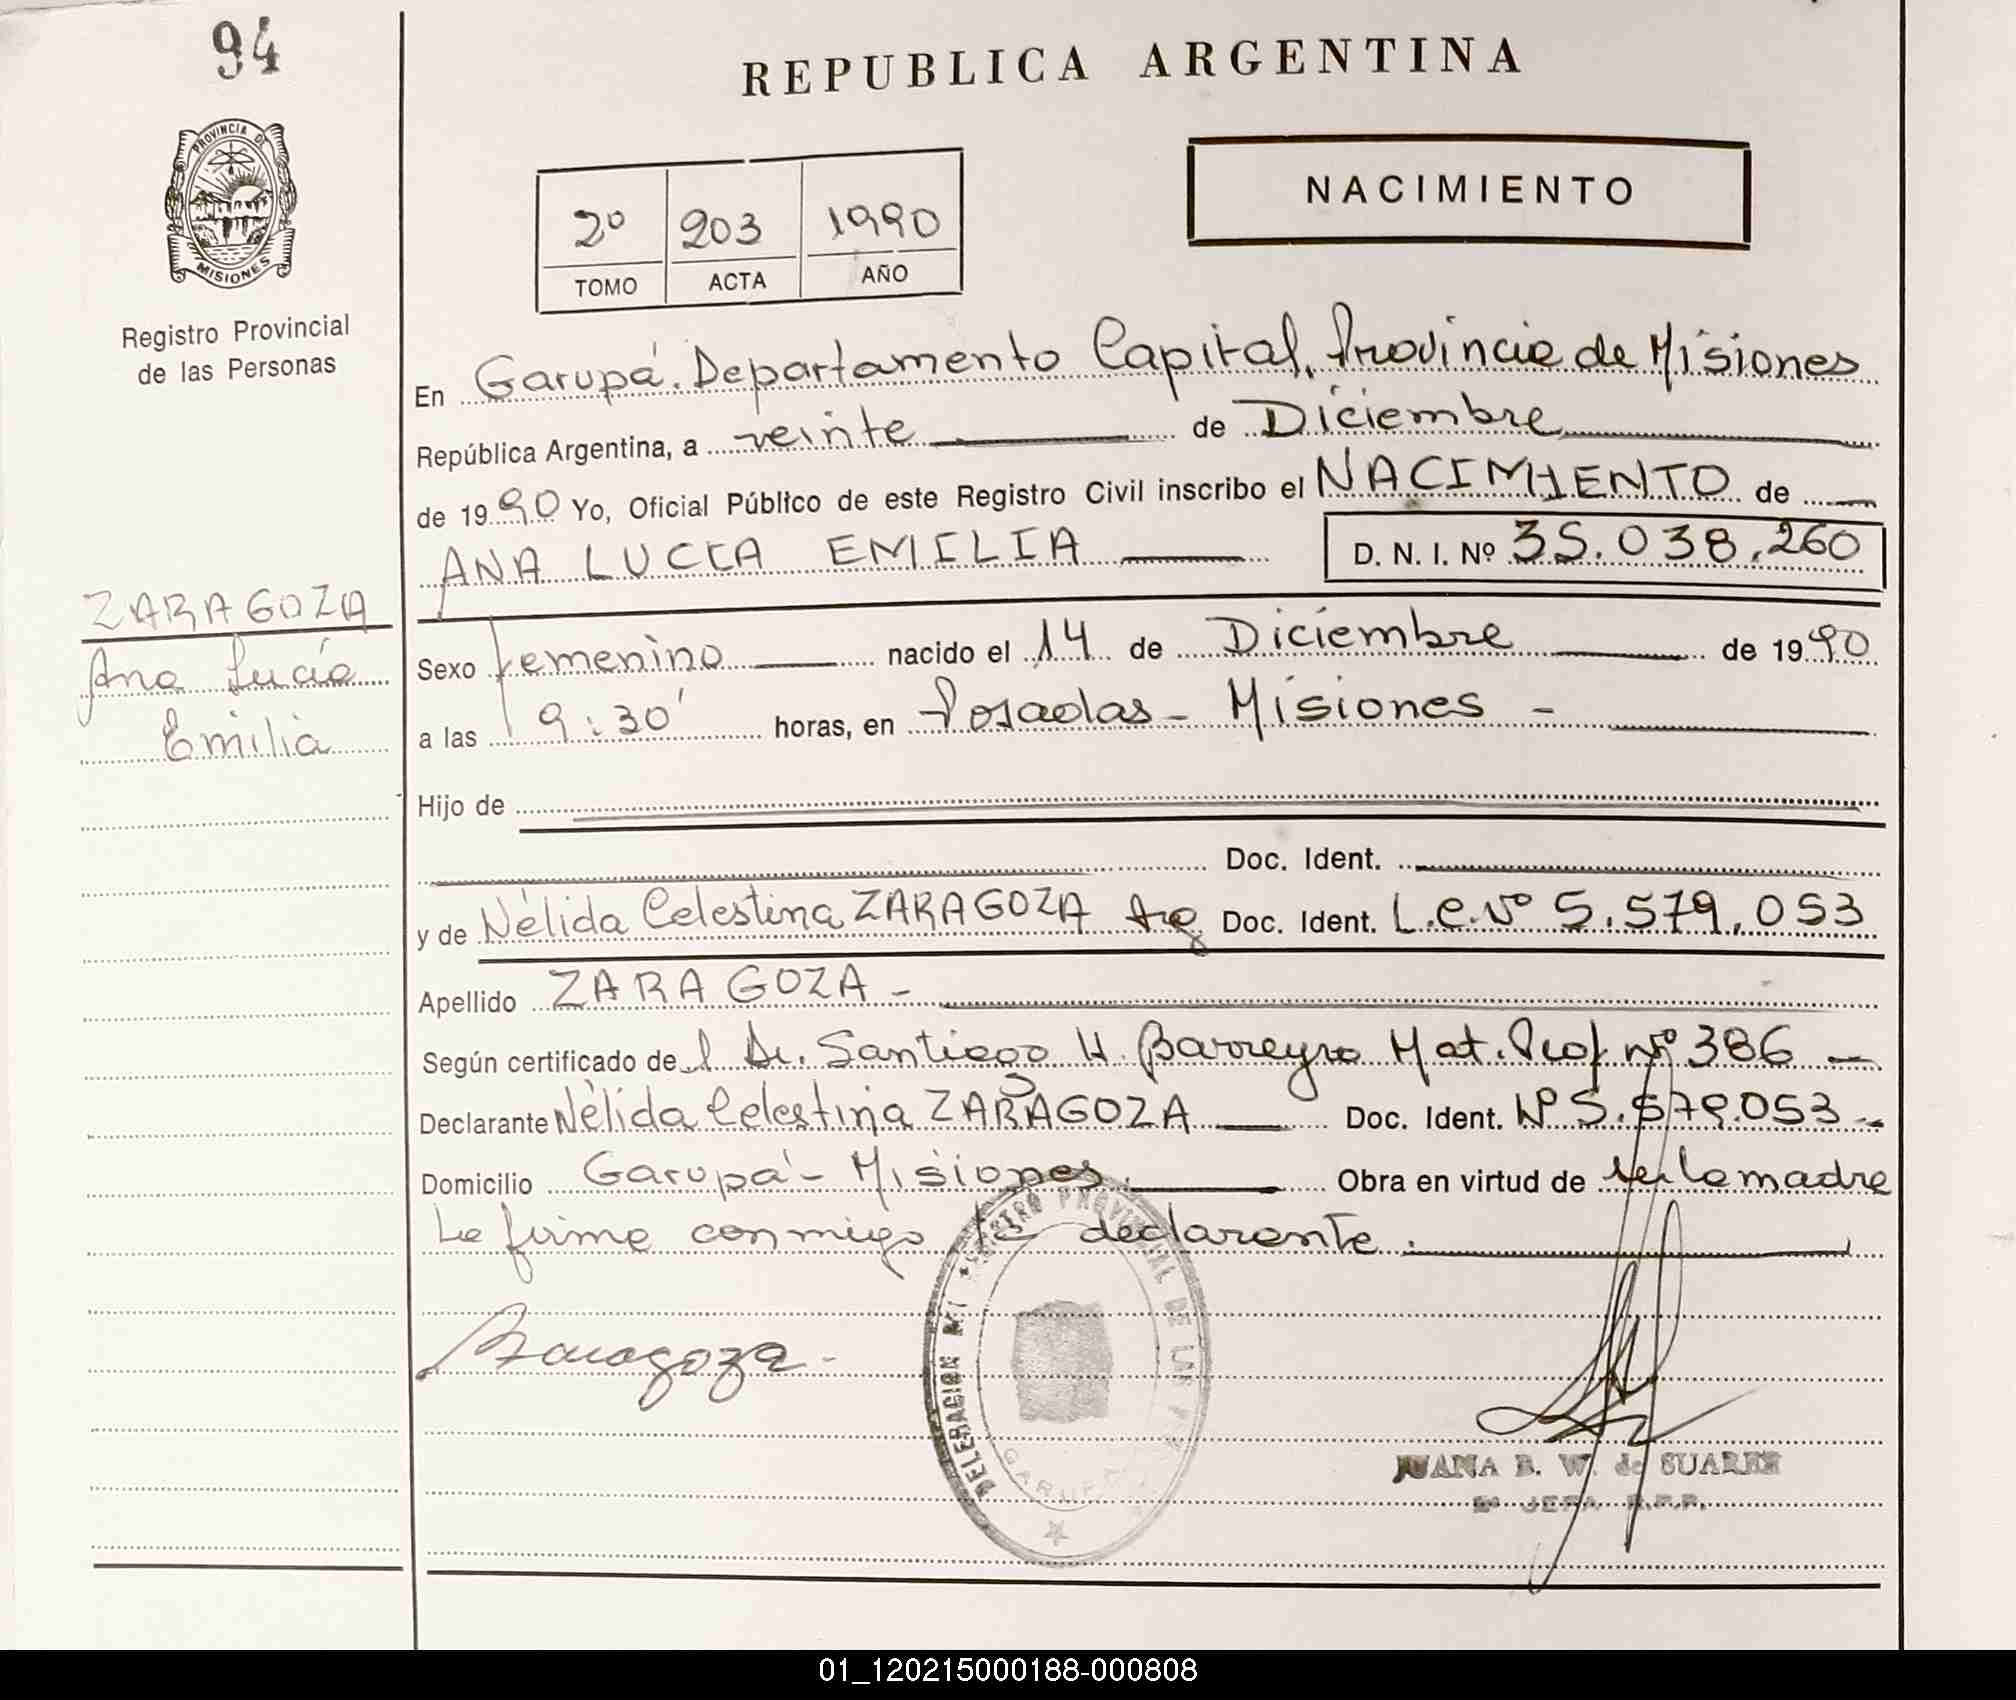 94
REPUBLICA ARGENTINA
PROVINCIA DE
MISIONES
Registro Provincial
de las Personas
NACIMIENTO
2º 203 1990
TOMO ACTA AÑO
En Garupá. Departamento Capital, Provincia de Misiones
República Argentina, a veinte de Diciembre
de 1990 Yo, Oficial Público de este Registro Civil inscribo el NACIMIENTO de
ANA LUCIA EMILIA D. N. I. Nº 35.038.260
ZARAGOZA
Ana Lucía
Emilia
Sexo femenino nacido el 14 de Diciembre de 1990
a las 9:30' horas, en Posadas - Misiones -
Hijo de
Doc. Ident.
y de Nélida Celestina ZARAGOZA Arg. Doc. Ident. L.C. Nº 5.579.053
Apellido ZARAGOZA -
Según certificado del Dr. Santiago H. Barreyro Mat. Prof. Nº 386 -
Declarante Nélida Celestina ZARAGOZA Doc. Ident. Nº 5.579.053 -
Domicilio Garupá - Misiones. Obra en virtud de ser la madre
La firma conmigo la declarante.
Zaragoza -
REGISTRO PROVINCIAL DE LAS
DELEGACION
GARUPA
JUANA B. W. de SUAREZ
2ª JEFA R.P.P.
01_120215000188-000808